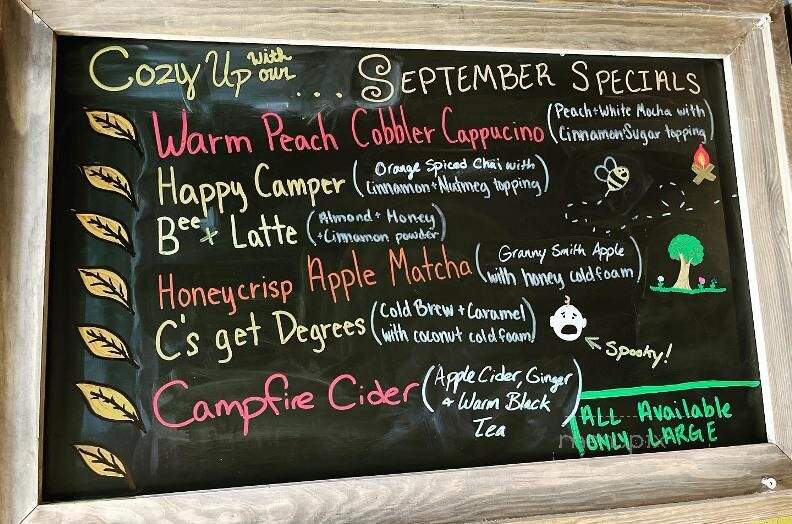 Cozy Up with our ... September Specials
Warm Peach Cobbler Cappucino (Peach+White Mocha with
Cinnamon Sugar topping)
Happy Camper (Orange Spiced Chai with
Cinnamon+Nutmeg topping)
Bee+ Latte (Almond + Honey
+Cinnamon powder)
Honeycrisp Apple Matcha (Granny Smith Apple
with honey cold foam)
C's get Degrees (Cold Brew + Caramel
with coconut cold foam)
Spooky!
Campfire Cider (Apple Cider, Ginger
+ Warm Black
Tea)
ALL Available
ONLY LARGE